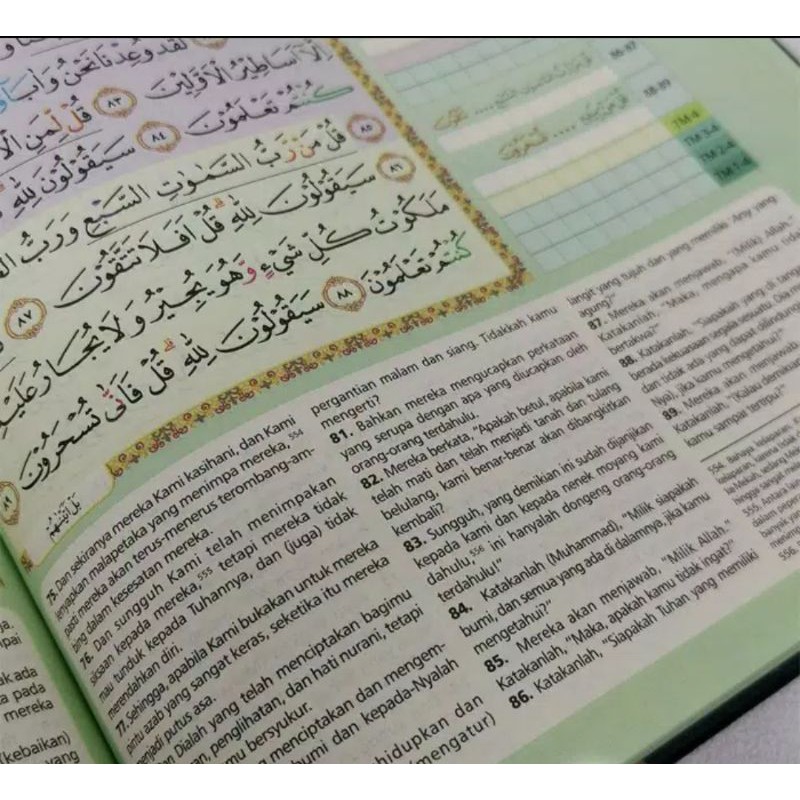 لَقَدْ وُعِدْنَا نَحْنُ وَاٰبَا
اِلَّآ اَسَاطِيْرُ الْاَوَّلِيْنَ ٨٣ قُلْ لِّمَنِ
كُنْتُمْ تَعْلَمُوْنَ ٨٤ سَيَقُوْلُوْنَ لِلّٰهِ
٨٥ قُلْ مَنْ رَّبُّ السَّمٰوٰتِ السَّبْعِ وَرَبُّ
٨٦ سَيَقُوْلُوْنَ لِلّٰهِ قُلْ اَفَلَا تَتَّقُوْنَ ٨٧
مَلَكُوْتُ كُلِّ شَيْءٍ وَّهُوَ يُجِيْرُ وَلَا يُجَارُ عَلَيْهِ
كُنْتُمْ تَعْلَمُوْنَ ٨٨ سَيَقُوْلُوْنَ لِلّٰهِ قُلْ فَاَنّٰى تُسْحَرُوْنَ
بَلْ اَتَيْنٰهُمْ
86-87
88-89
TM-4
TM 3-4
TM 2-4
TM 1-4
75. Dan sekiranya mereka Kami kasihani, dan Kami
lenyapkan malapetaka yang menimpa mereka,554
pasti mereka akan terus-menerus terombang-am-
bing dalam kesesatan mereka.
76. Dan sungguh Kami telah menimpakan
siksaan kepada mereka,555 tetapi mereka tidak
mau tunduk kepada Tuhannya, dan (juga) tidak
merendahkan diri.
77. Sehingga, apabila Kami bukakan untuk mereka
pintu azab yang sangat keras, seketika itu mereka
menjadi putus asa.
Dan Dialah yang telah menciptakan bagimu
penglihatan, dan hati nurani, tetapi
mu bersyukur.
menciptakan dan mengem-
bumi dan kepada-Nyalah
hidupkan dan
(mengatur)
pergantian malam dan siang. Tidakkah kamu
mengerti?
81. Bahkan mereka mengucapkan perkataan
yang serupa dengan apa yang diucapkan oleh
orang-orang terdahulu.
82. Mereka berkata, "Apakah betul, apabila kami
telah mati dan telah menjadi tanah dan tulang
belulang, kami benar-benar akan dibangkitkan
kembali?
83. Sungguh, yang demikian ini sudah dijanjikan
kepada kami dan kepada nenek moyang kami
dahulu,556 ini hanyalah dongeng orang-orang
terdahulu!"
84. Katakanlah (Muhammad), "Milik siapakah
bumi, dan semua yang ada di dalamnya, jika kamu
mengetahui?"
85. Mereka akan menjawab, "Milik Allah."
Katakanlah, "Maka, apakah kamu tidak ingat?"
86. Katakanlah, "Siapakah Tuhan yang memiliki
langit yang tujuh dan yang memiliki 'Arsy yang
agung?"
87. Mereka akan menjawab, "(Milik) Allah."
Katakanlah, "Maka, mengapa kamu tidak
bertakwa?"
88. Katakanlah, "Siapakah yang di tangan
berada kekuasaan segala sesuatu. Dia
dan tidak ada yang dapat dilindungi
Nya), jika kamu mengetahui?"
89. Mereka akan menjawab,
Katakanlah, "(Kalau demikian
kamu sampai tertipu?"
554.
555. Antara
556.
ada
pada
mereka
(kebaikan)
yang